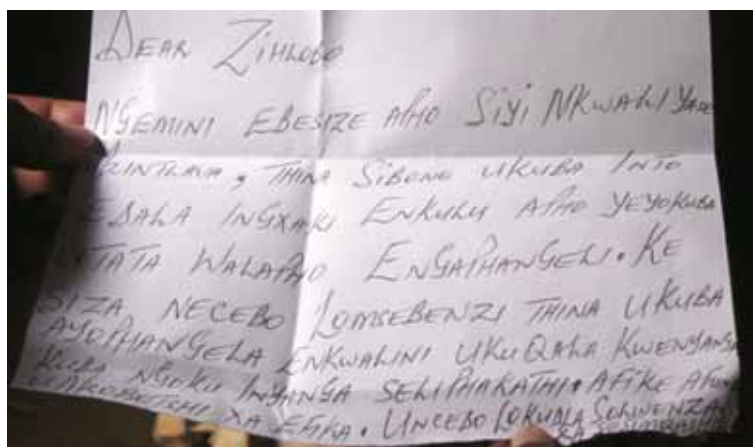 DEAR ZIHLOBO
NGEMINI EBESIZE APHO SIYI NKWALI YASE
THINA SIBONE UKUBA INTO
EDALA INGXAKI ENKULU APHO YEYOKUBA
UTATA WALAPHO ENGAPHANGELI. KE
SIZA NECEBO LOMSEBENZI THINA UKUBA
AYOPHANGELA ENKWALINI UKUQALA KWENYANGA
KUBA NGOKU INYANGA SELIPHAKATHI. AFIKE
XA EFIKA. UNCEBO LOKUDLA SOKWENZA